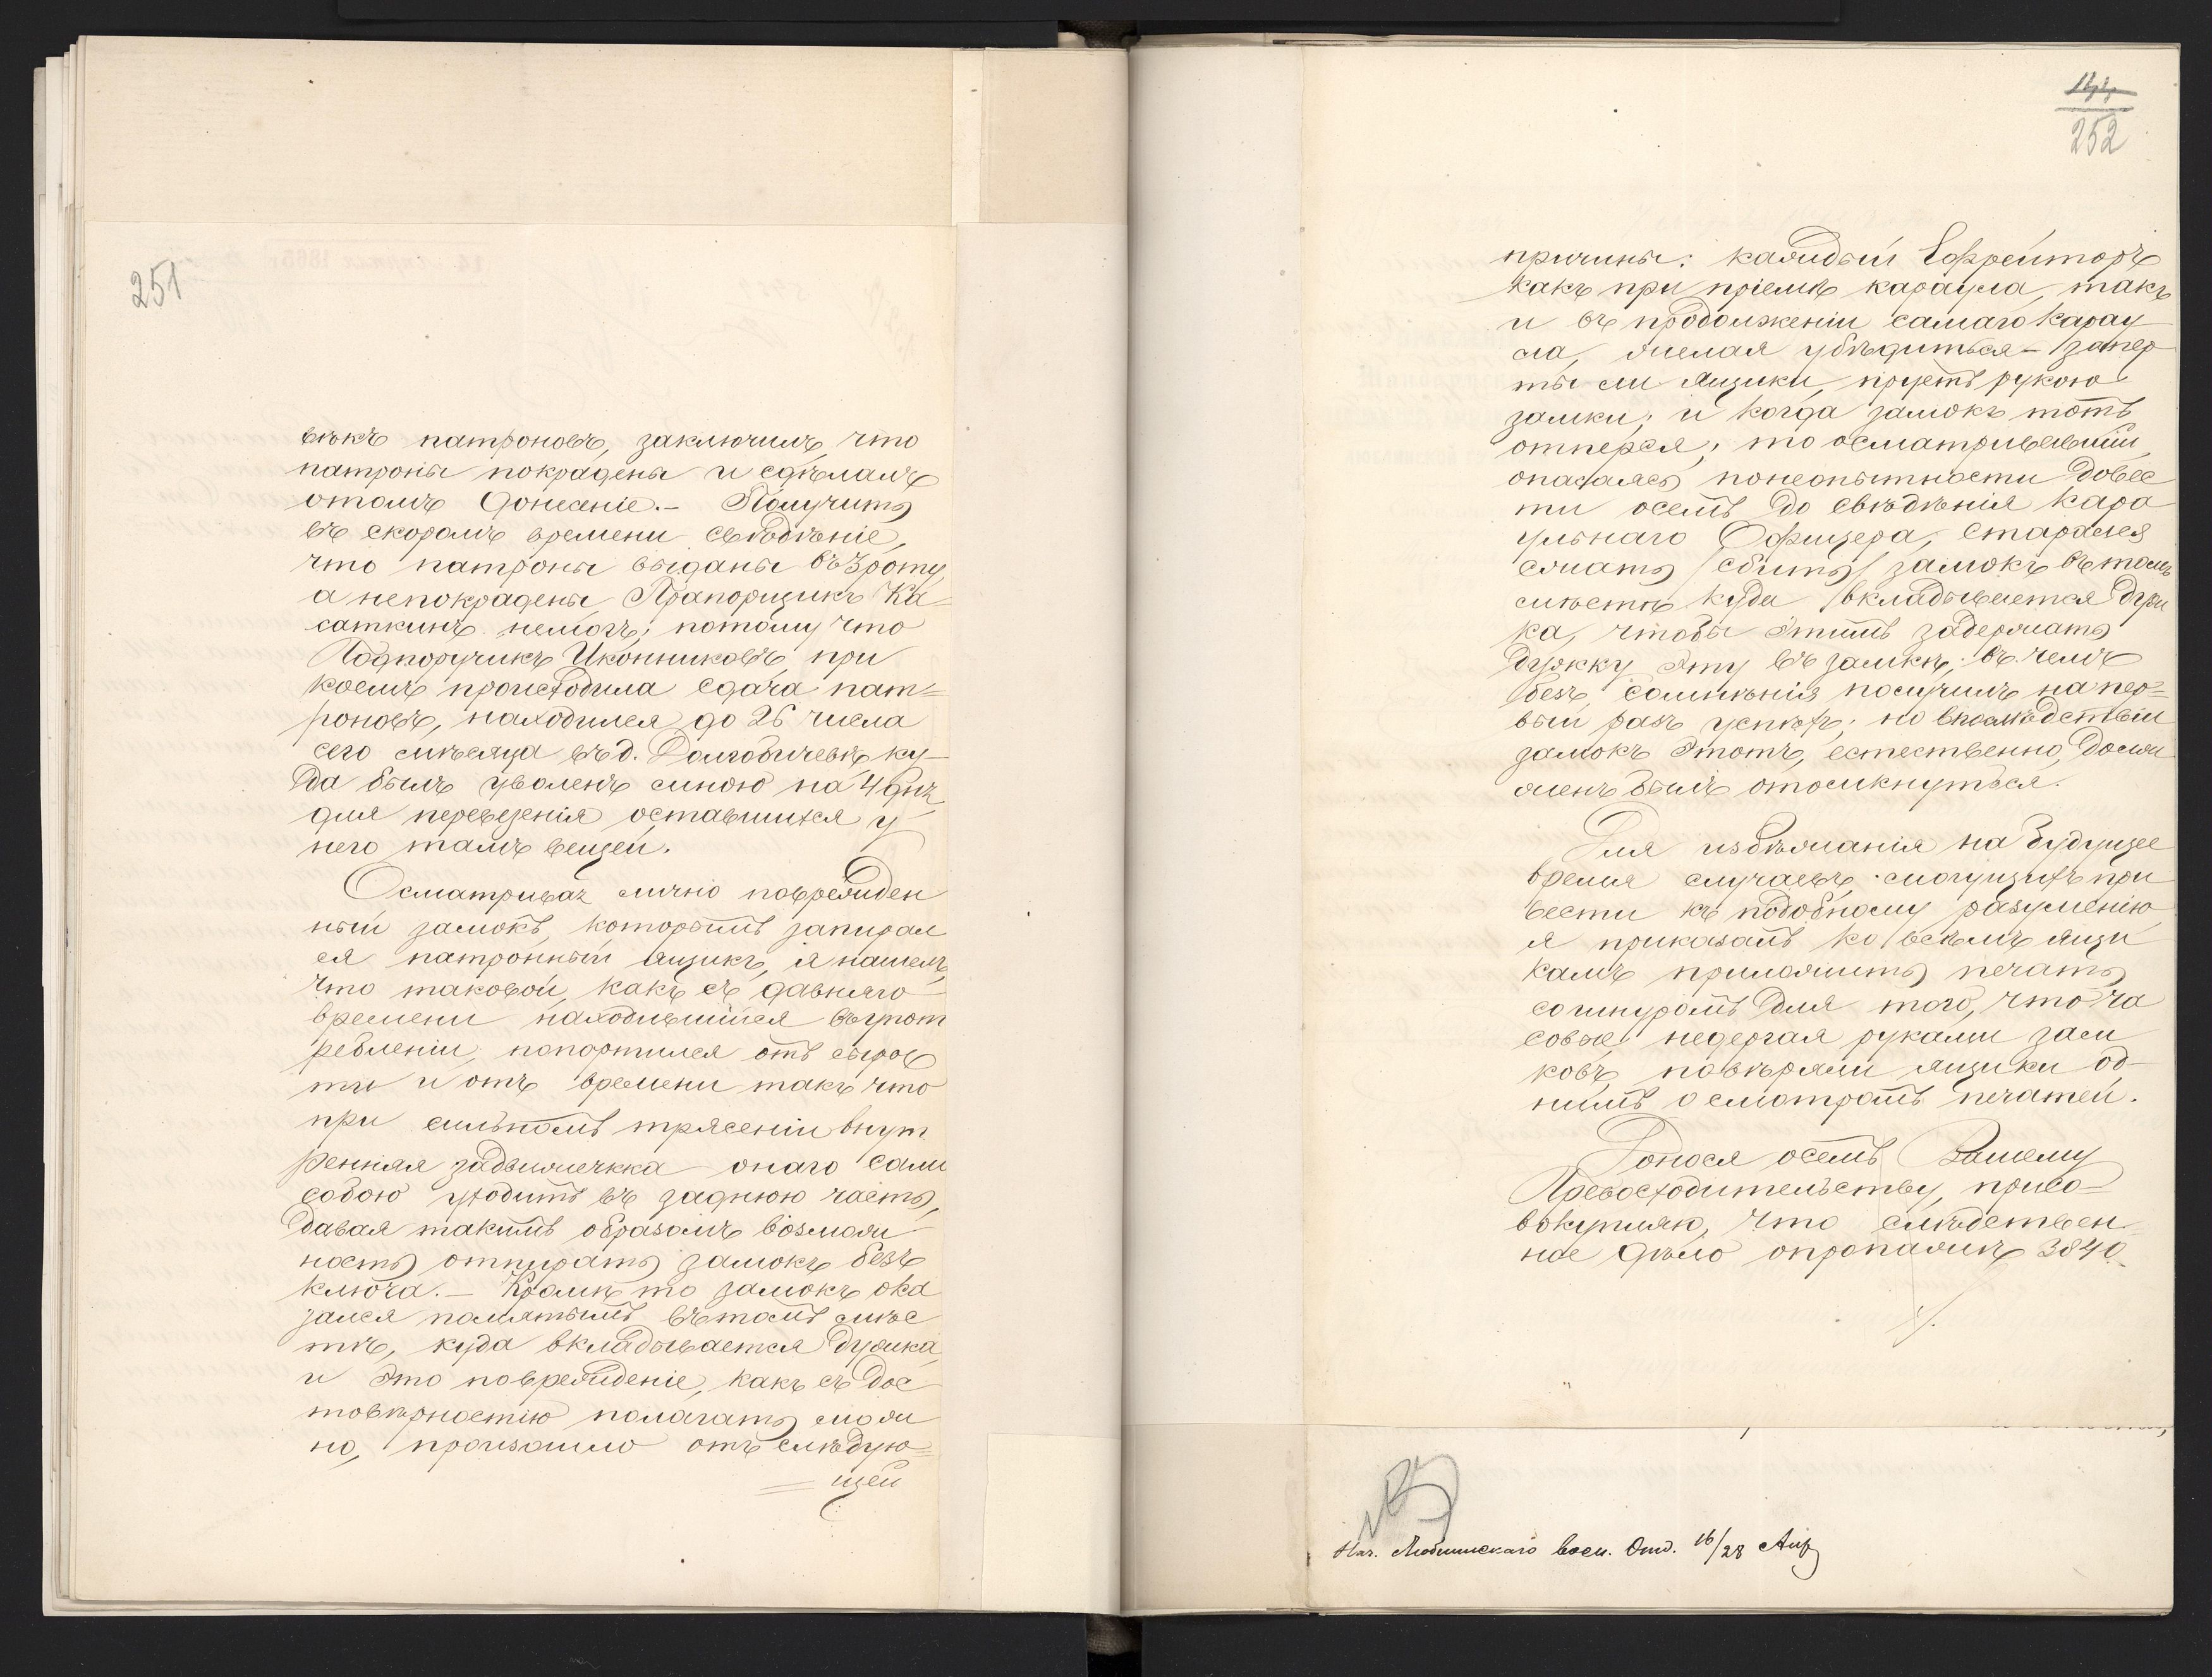 251
вѣкъ патроновъ, заключилъ, что
патроны покрадены и сдѣлалъ
отомъ донесеніе. – Получить
въ скоромъ времени свѣдѣніе,
что патроны выданы въ 3 роту,
а непокрадены, Прапорщикъ Ка-
саткинъ немогъ; потому что
Подпоручикъ Иконниковъ, при
коемъ происходила сдача пат=
роновъ, находился до 26 числа
сего мѣсяца въ д. Долгобичевѣ, ку-
да былъ уволенъ мною на 4 дня
для перевезенія оставшихся у
него тамъ вещей.
Осматривая лично поврежден
ный замокъ, которымъ запирал
ся патронный ящикъ, я нашелъ,
что таковой, какъ съ давняго
времени находившійся въ упот
ребленіи, попортился отъ сырос
ти и отъ времени такъ что
при сильномъ трясеніи внут
ренняя задвижечкка онаго сама
собою уходитъ въ заднюю часть,
давая такимъ образомъ возмож
ность отпирать замокъ безъ
ключа. – Кромѣ то замокъ ока
зался помятымъ въ томъ мѣс
тѣ, куда вкладывается дужка,
и это поврежденіе, какъ съ дос
товѣрностію полагать мож
но, произошло отъ слѣдую=
= щей
252
причины: каждый Ефрейторъ
какъ при пріемѣ караула, такъ
и въ продолженіи самаго карау
ла, желая убѣдиться – запер
ты ли ящики, пруетъ рукою
замки; и когда замокъ тотъ
отперся; то осматривавшій,
опасаясь понеопытности довес
ти осемъ до свѣдѣнія кара
ульнаго Офицера, старался
сжать /сбить/ замокъ въ томъ
мѣстѣ куда вкладывается дуж
ка, чтобы этимъ задержать
дужку эту въ замкѣ; въ чемъ
безъ сомнѣнія получилъ на пер=
вый разъ успѣхъ; но впослѣдствіи
замокъ этотъ, естественно, долж
женъ былъ отомкнуться.
Для избѣжанія на будущее
время случаевъ, могущихъ при
вести къ подобному разуменію
я приказалъ ко всѣмъ ящи
камъ приложить печать
со шнуромъ для того, что ча
совые недергая руками зам
ковъ, повѣряли ящики од-
нимъ осмотромъ печатей.
Донося осемъ Вашему
Превосходительству, присо=
вокупляю, что слѣдствен
ное дѣло опропажѣ 3840
/.
Нач. Люблинскаго воен. Отд. 16/28 Апр